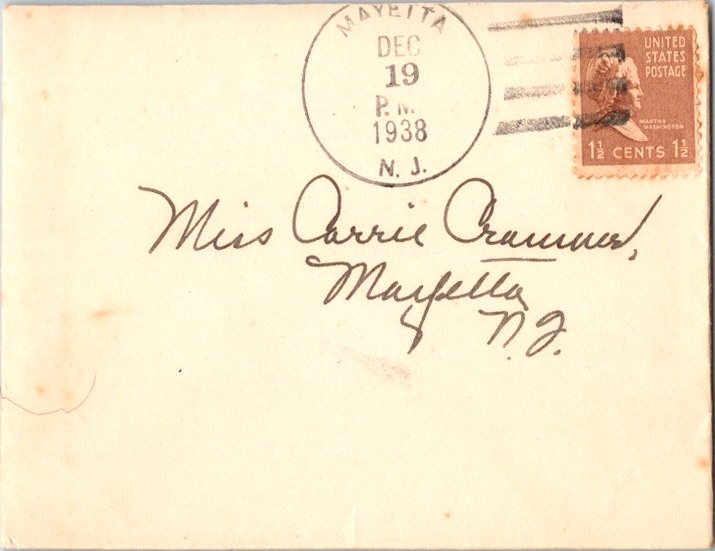 MAYETTA
DEC
19
P.M.
1938
N. J.
UNITED
STATES
POSTAGE
MARTHA
WASHINGTON
1½ CENTS 1½
Miss Carrie Cramer,
Mayetta
N.J.